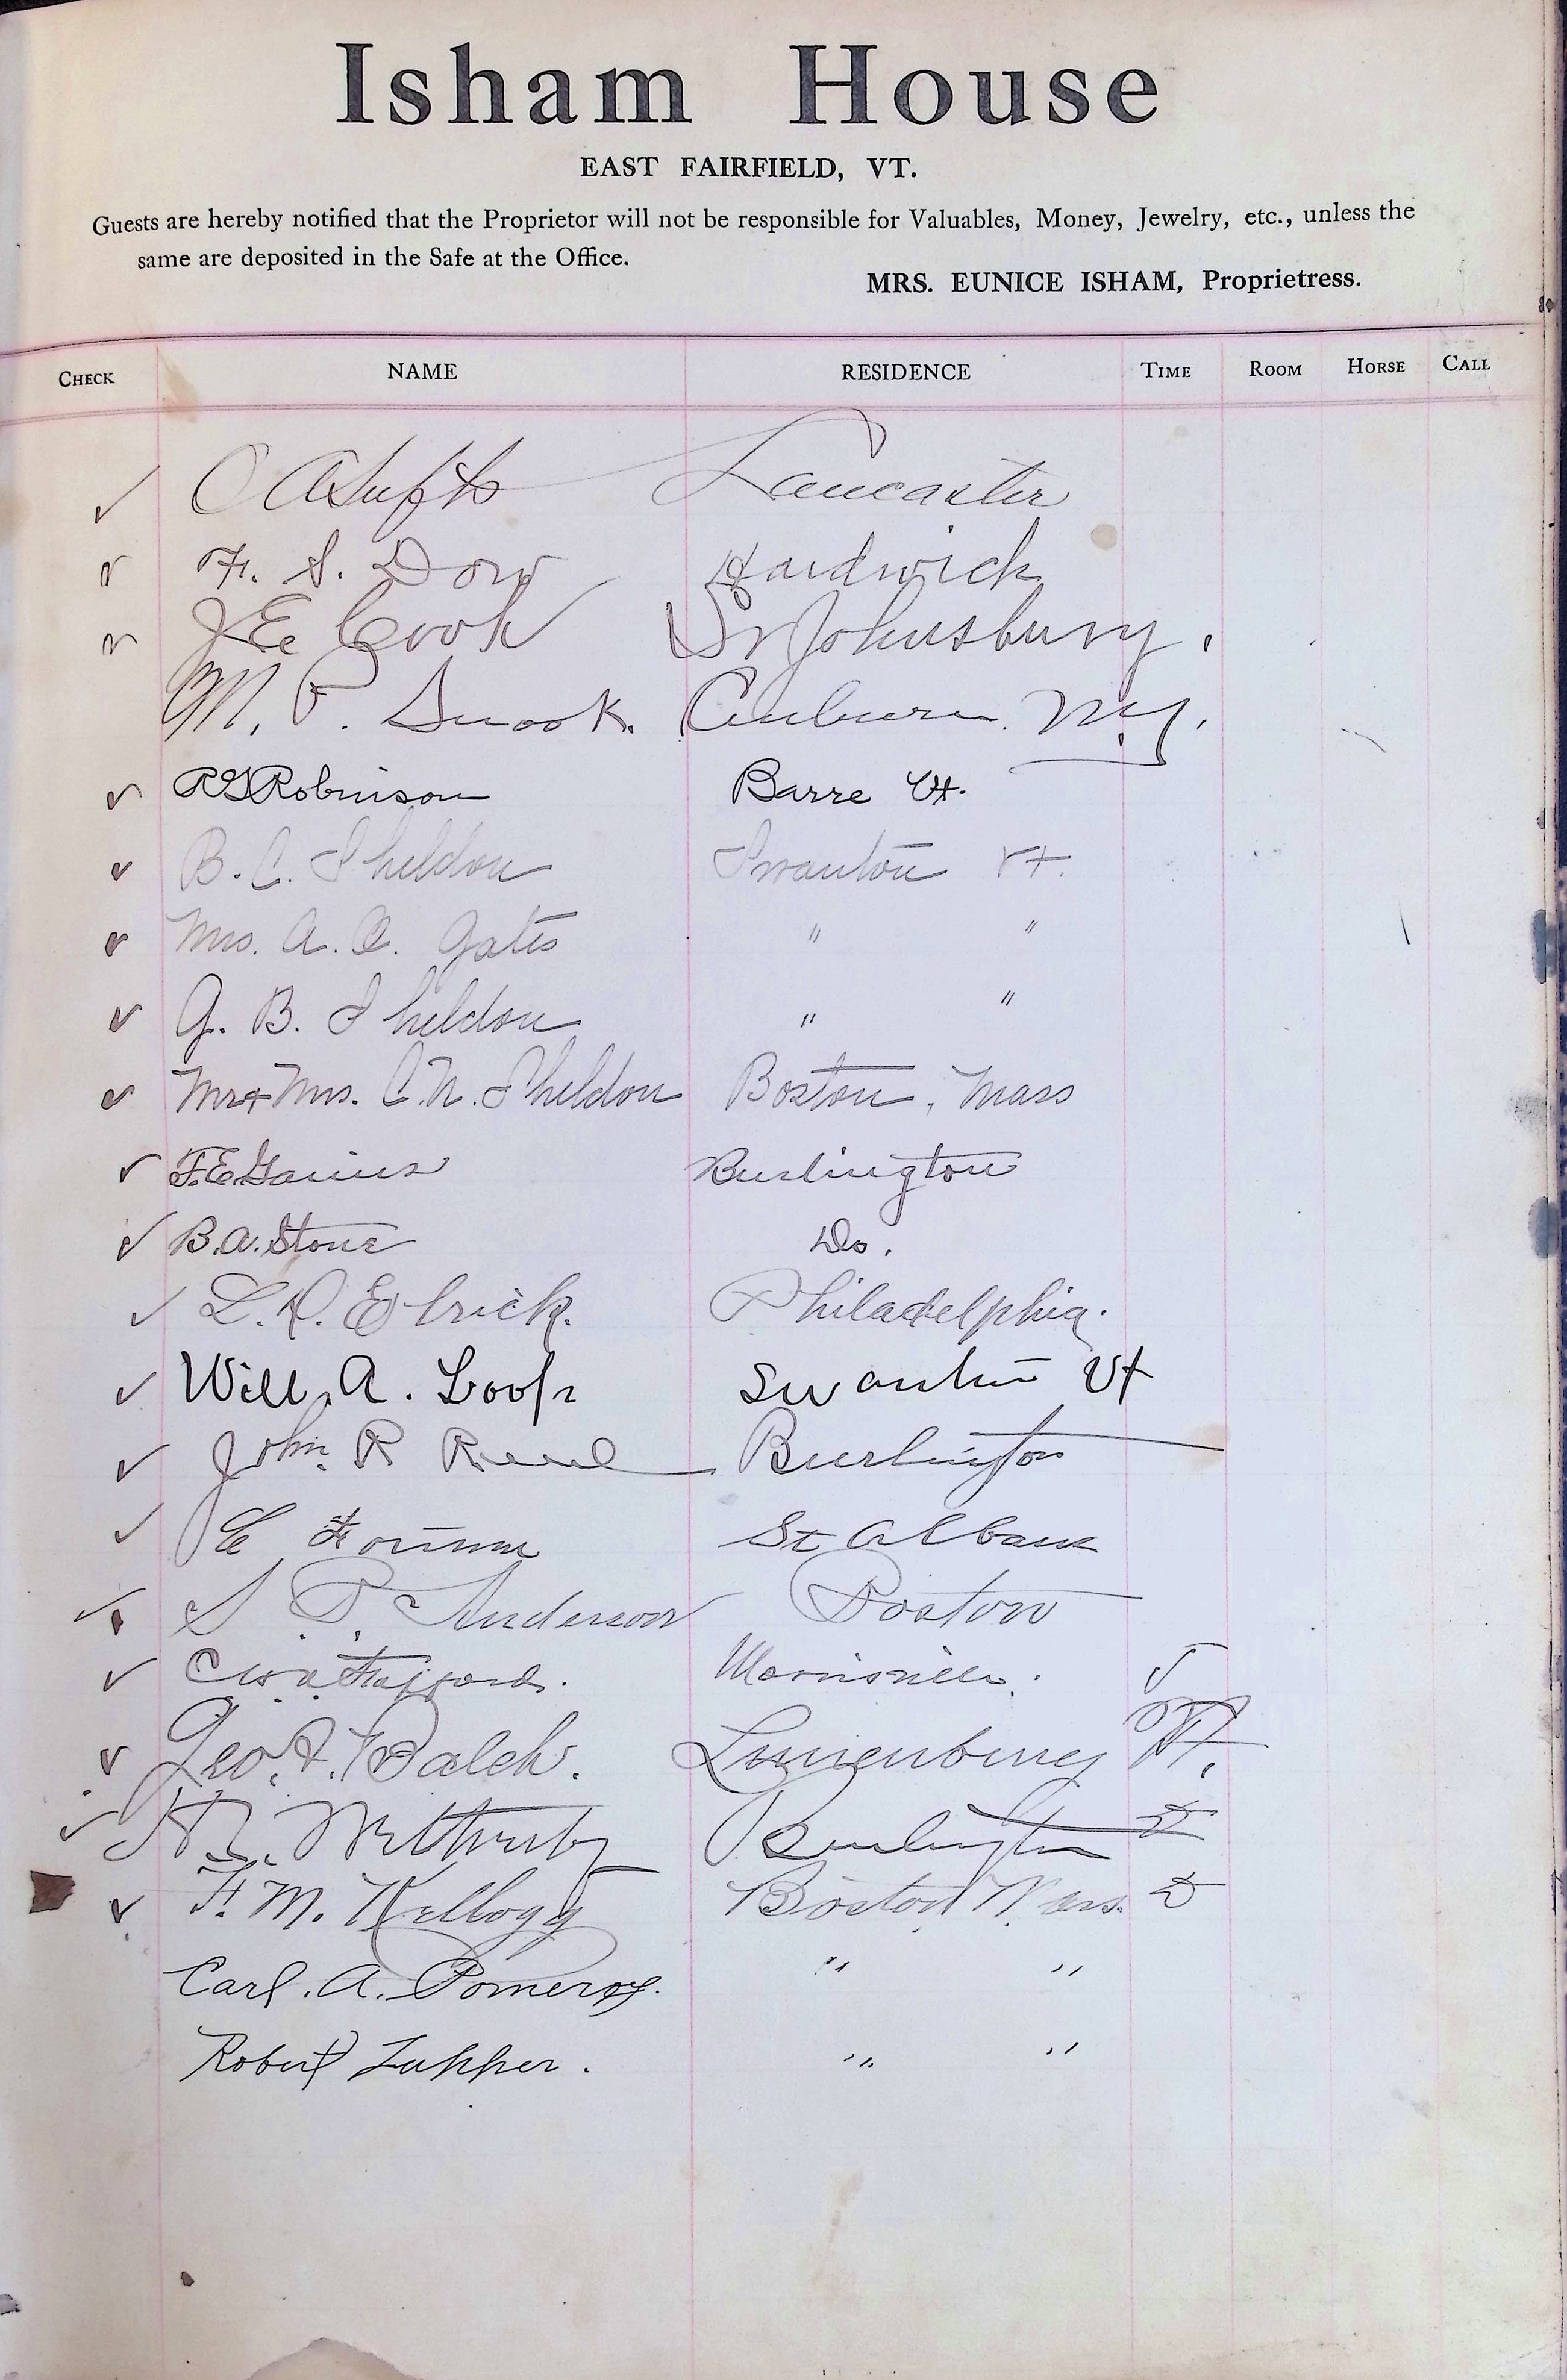 Isham House
EAST FAIRFIELD, VT.
Guests are hereby notified that the Proprietor will not be responsible for Valuables, Money, Jewelry, etc., unless the
same are deposited in the Safe at the Office.
MRS. EUNICE ISHAM, Proprietress.
CHECK NAME RESIDENCE TIME ROOM HORSE CALL
Lancaster
F. S. Dow Hardwick
J E Cook St Johnsbury.
M. P. Snook. Auburn. N.Y.
Robinson Barre Vt.
B. C. Sheldon Swanton Vt.
Mrs. A. O. Gates " "
G. B. Sheldon " "
Mr & Mrs. C. N. Sheldon Boston, Mass
F. E. Burlington
B. A. Stone Do.
L. Philadelphia.
Will. A. Swanton Vt
John R Burlington
St Albans
S. P. Anderson Boston
Stafford. Morrisville.
Geo. Balch. Lunenburg Vt.
Wetherby Burlington
F. M. Kellogg Boston Mass.
Carl. A. Pomeroy. " "
Robert Tupper. " "